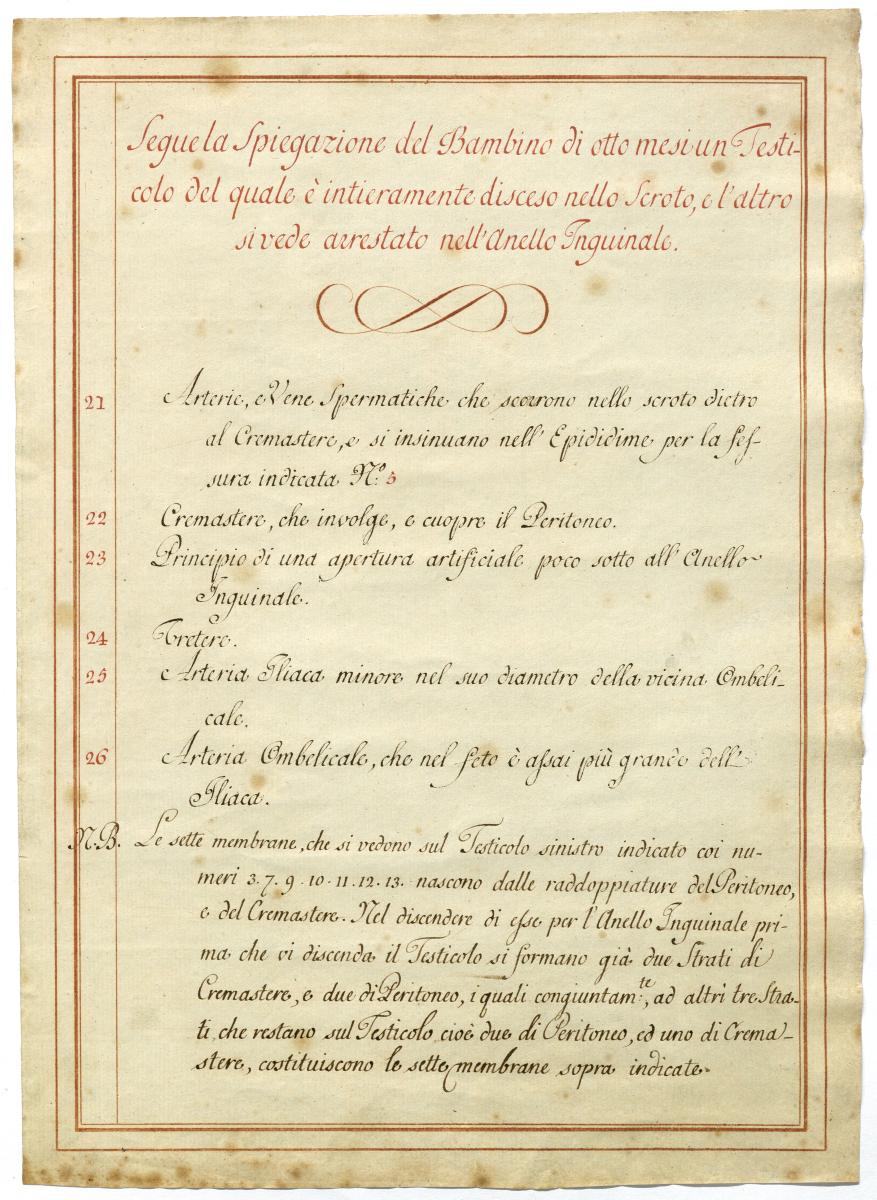 Segue la Spiegazione del Bambino di otto mesi un Testi-
colo del quale è intieramente disceso nello Scroto, e l'altro
si vede arrestato nell'Anello Inguinale.
21 Arterie, e Vene Spermatiche che scorrono nello scroto dietro
al Cremastere, e si insinuano nell' Epididime per la fes-
sura indicata N.º 5
22 Cremastere, che involge, e cuopre il Peritoneo.
23 Principio di una apertura artificiale poco sotto all' Anello
Inguinale.
24 Uretere.
25 Arteria Iliaca minore nel suo diametro della vicina Ombeli-
cale.
26 Arteria Ombelicale, che nel feto è assai più grande dell'
Iliaca.
N.B. Le sette membrane, che si vedono sul Testicolo sinistro indicato coi nu-
meri 3. 7. 9. 10. 11. 12. 13. nascono dalle raddoppiature del Peritoneo,
e del Cremastere. Nel discendere di esse per l'Anello Inguinale pri-
ma che vi discenda il Testicolo si formano già due Strati di
Cremastere, e due di Peritoneo, i quali congiuntam:te, ad altri tre Stra-
ti, che restano sul Testicolo cioè due di Peritoneo, ed uno di Crema-
stere, costituiscono le sette membrane sopra indicate.